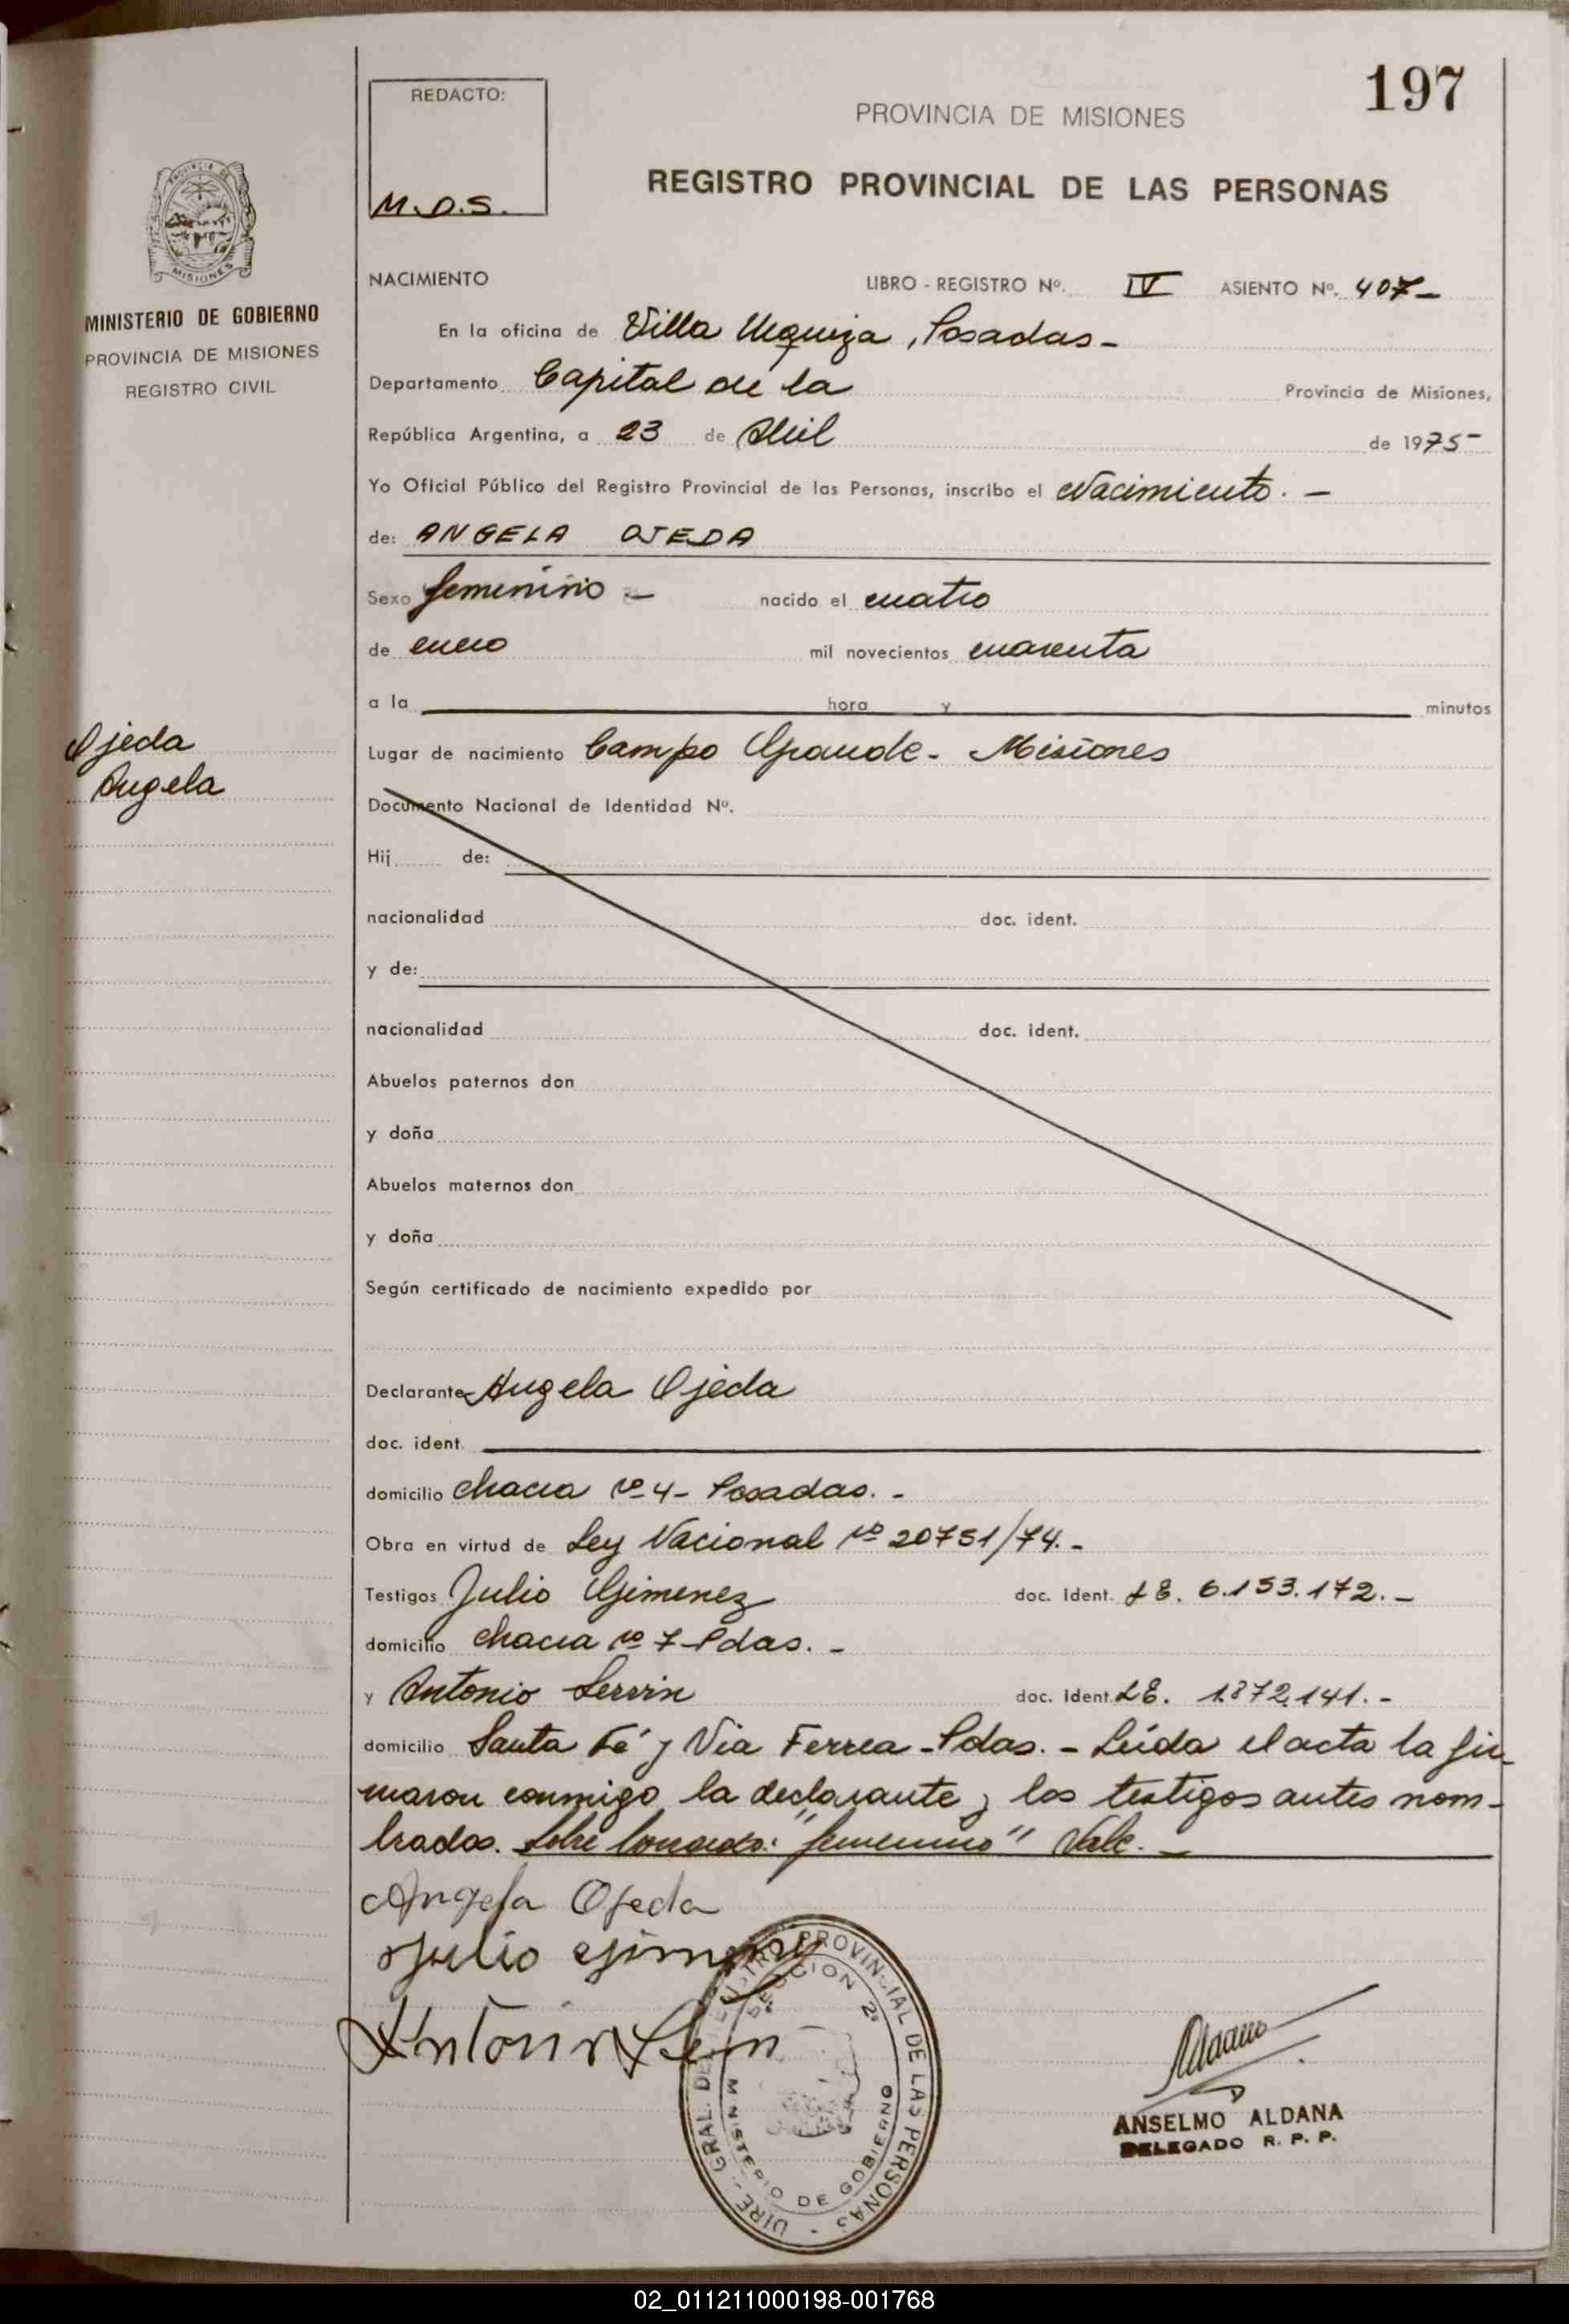 197
REDACTO:
M.D.S.
PROVINCIA DE MISIONES
REGISTRO PROVINCIAL DE LAS PERSONAS
MISIONES
MINISTERIO DE GOBIERNO
PROVINCIA DE MISIONES
REGISTRO CIVIL
NACIMIENTO LIBRO - REGISTRO Nº. IV ASIENTO Nº. 407-
En la oficina de Villa Urquiza, Posadas-
Departamento Capital de la Provincia de Misiones,
República Argentina, a 23 de Abril de 1975-
Yo Oficial Público del Registro Provincial de las Personas, inscribo el Nacimiento. -
de: ANGELA OJEDA
Sexo femenino - nacido el cuatro
de enero mil novecientos cuarenta
a la hora y minutos
Ojeda
Angela
Lugar de nacimiento Campo Grande - Misiones
Documento Nacional de Identidad Nº.
Hij de:
nacionalidad doc. ident.
y de:
nacionalidad doc. ident.
Abuelos paternos don
y doña
Abuelos maternos don
y doña
Según certificado de nacimiento expedido por
Declarante Angela Ojeda
doc. ident.
domicilio Chacra Nº 4- Posadas. -
Obra en virtud de Ley Nacional Nº 20751/74. -
Testigos Julio Gimenez doc. Ident. LE. 6.153.172. -
domicilio Chacra Nº 7-Pdas. -
y Antonio Servin doc. Ident. LE. 1.872.141. -
domicilio Santa Fé y Via Ferrea -Pdas. - Leída el acta la fir-
maron conmigo la declarante y los testigos antes nom-
brados. Sobre borrado: "femenino" Vale. -
Angela Ojeda
Julio Gimenez
Antonio
DIRE - GRAL. DEL REGISTRO PROVINCIAL DE LAS PERSONAS
SECCION 2ª
MINISTERIO DE GOBIERNO
Aldana
ANSELMO ALDANA
DELEGADO R. P. P.
02_011211000198-001768